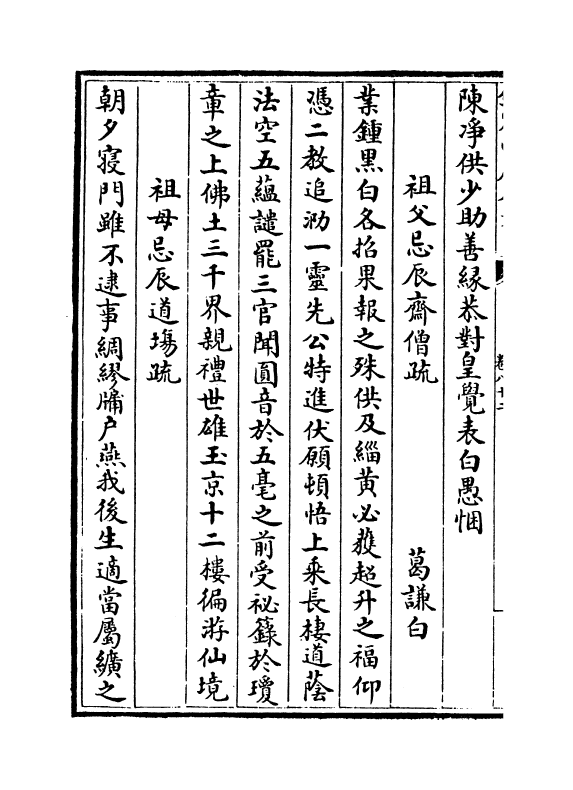 陳凈供少助善縁恭對皇覺表白愚悃
祖父忌辰齋僧疏 葛謙白
業鍾黒白各招果報之殊供及緇黄必蕿超升之福仰
憑二教追泐一靈先公特進伏願頓悟上乘長棲道蔭
法空五蘊譴罷三官聞圓音於五毫之前受祕籙於瓊
章之上佛土三千界親禮世雄玉京十二樓徧游仙境
祖母忌辰道塲疏
朝夕寢門雖不逮事綢繆牖户燕我後生適當屬纊之
卷八十二